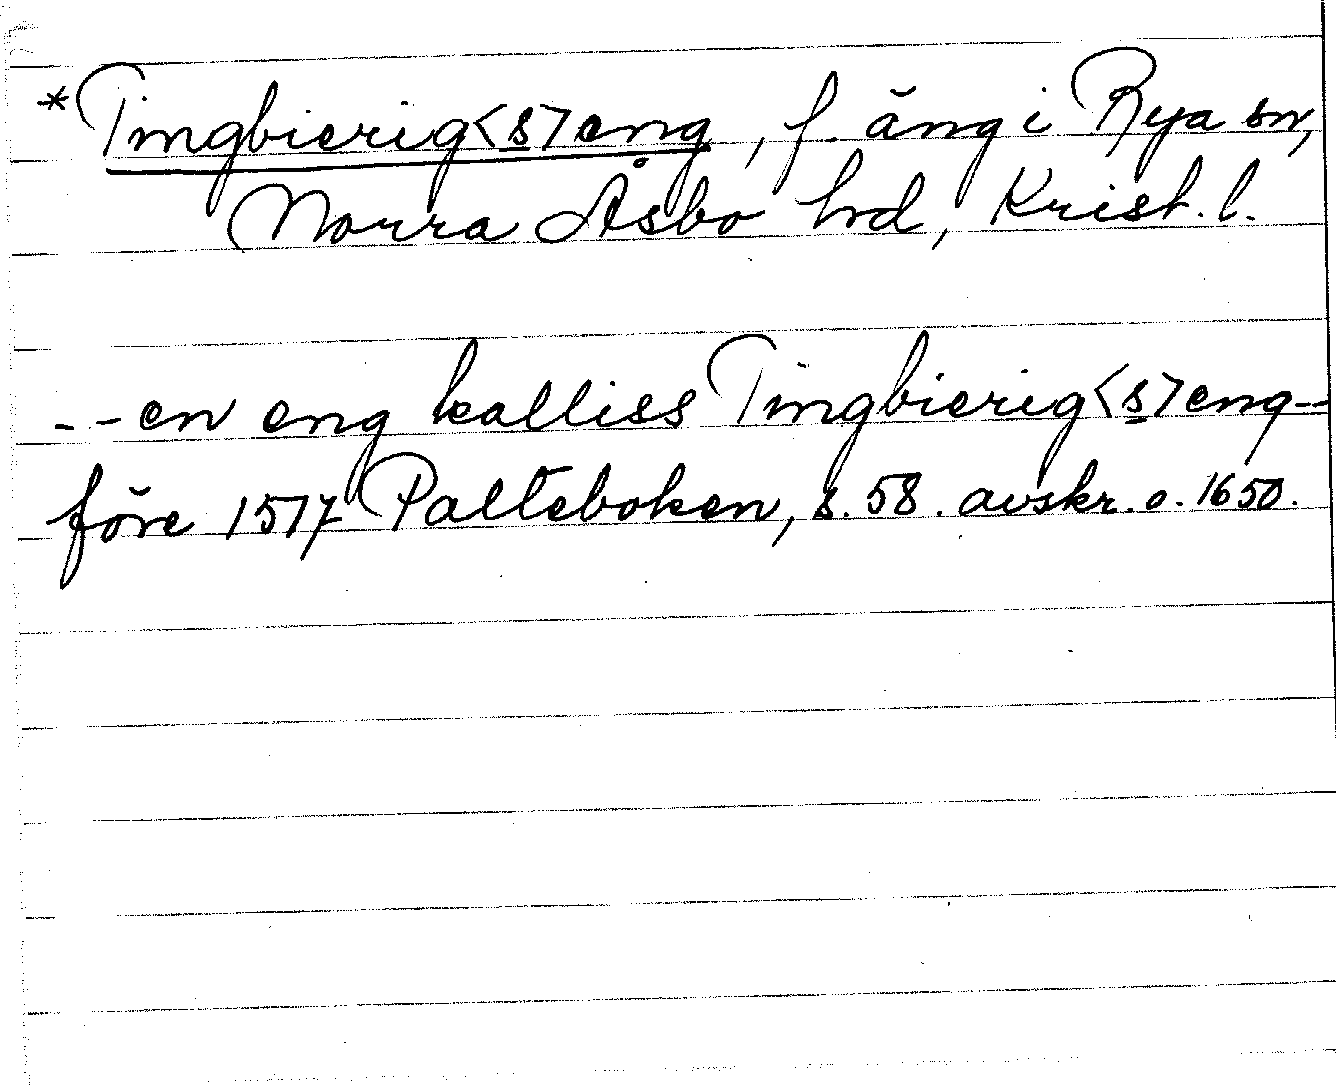 *Tingbierig<s>eng, f. äng i Rya sn,
Norra Åsbo hd, Krist. l.
- - en eng kalliss Tingbierig<s>eng --
före 1517 Palteboken, s. 58. avskr. o. 1650.